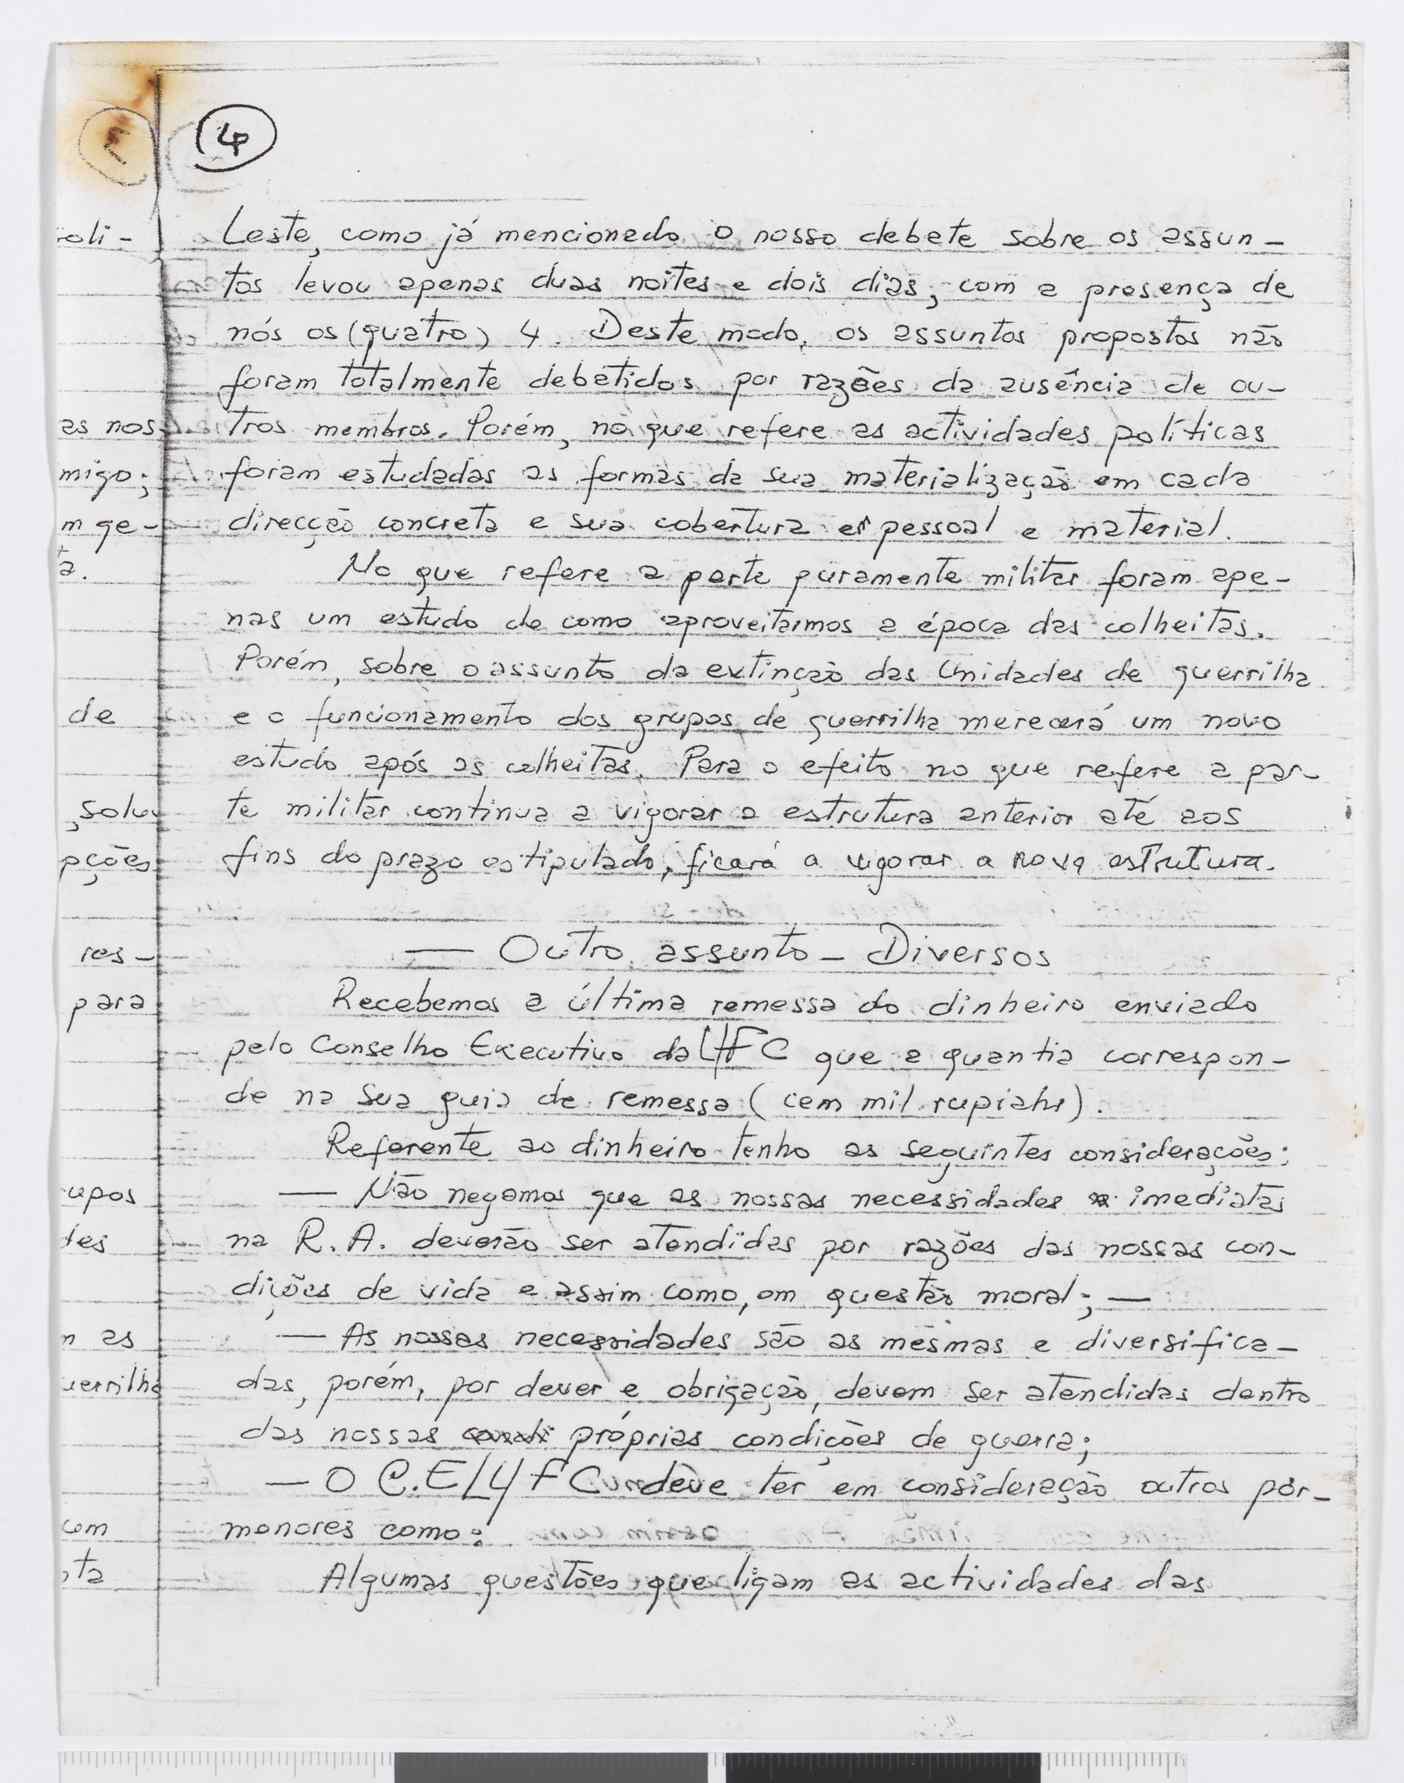 4
Leste, como já mencionado o nosso debate sobre os assun-
tos levou apenas duas noites e dois dias, com a presença de
nós os (quatro) 4. Deste modo, os assuntos propostos não
foram totalmente debatidos por razões da ausência de ou-
tros membros. Porém, no que refere as actividades políticas
foram estudadas as formas da sua materialização em cada
direcção concreta e sua cobertura em pessoal e material.
No que refere a parte puramente militar foram ape-
nas um estudo de como aproveitarmos a época das colheitas.
Porém, sobre o assunto da extinção das Unidades de guerrilha
e o funcionamento dos grupos de guerrilha merecerá um novo
estudo após as colheitas. Para o efeito no que refere a par-
te militar continua a vigorar a estrutura anterior até aos
fins do prazo estipulado, ficará a vigorar a nova estrutura.
— Outro assunto - Diversos
Recebemos a última remessa do dinheiro enviado
pelo Conselho Executivo da L4FC que a quantia correspon-
de na sua guia de remessa (cem mil rupiahs).
Referente ao dinheiro tenho as seguintes considerações:
— Não negamos que as nossas necessidades imediatas
na R.A. deverão ser atendidas por razões das nossas con-
dições de vida e assim como, em questão moral; —
— As nossas necessidades são as mesmas e diversifica-
das, porém, por dever e obrigação, devem ser atendidas dentro
das nossas próprias condições de guerra;
— O C.E/L4FC deve ter em consideração outros pór-
menores como:
Algumas questões que ligam as actividades das
oli-
as nos
migo;
m ge-
ta.
de
, solu
pções
res-
para
upos
des
n as
uerrilha
com
ta